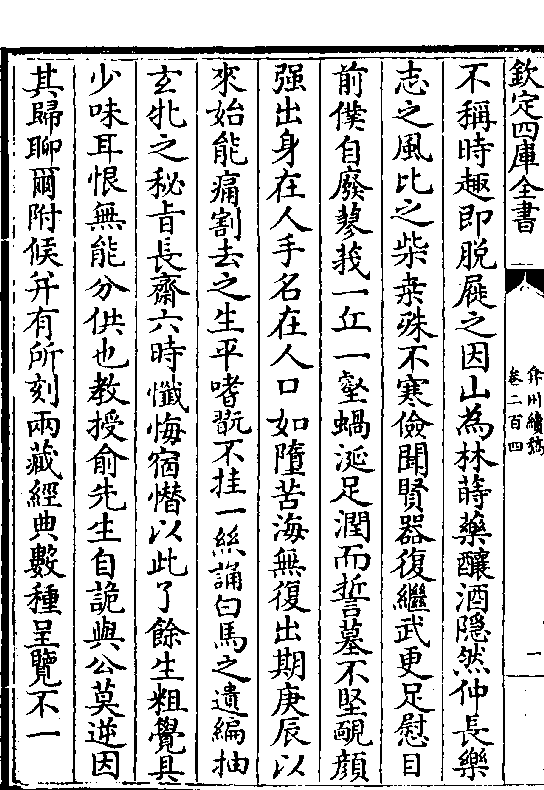 欽定四庫全書
弇州續稿
卷二百四
一
不稱時趣即脫屣之因山為林蒔藥釀酒隱然仲長樂
志之風比之柴桑殊不寒儉聞賢器復繼武更足慰目
前僕自廢蓼莪一丘一壑蝸涎足潤而誓墓不堅靦顔
强出身在人手名在人口如墮苦海無復出期庚辰以
來始能痛割去之生平嗜翫不挂一絲誦白馬之遺編抽
玄牝之秘旨長齋六時懺悔宿愆以此了餘生粗覺具
少味耳恨無能分供也教授俞先生自詭與公莫逆因
其歸聊爾附候并有所刻兩藏經典數種呈覽不一